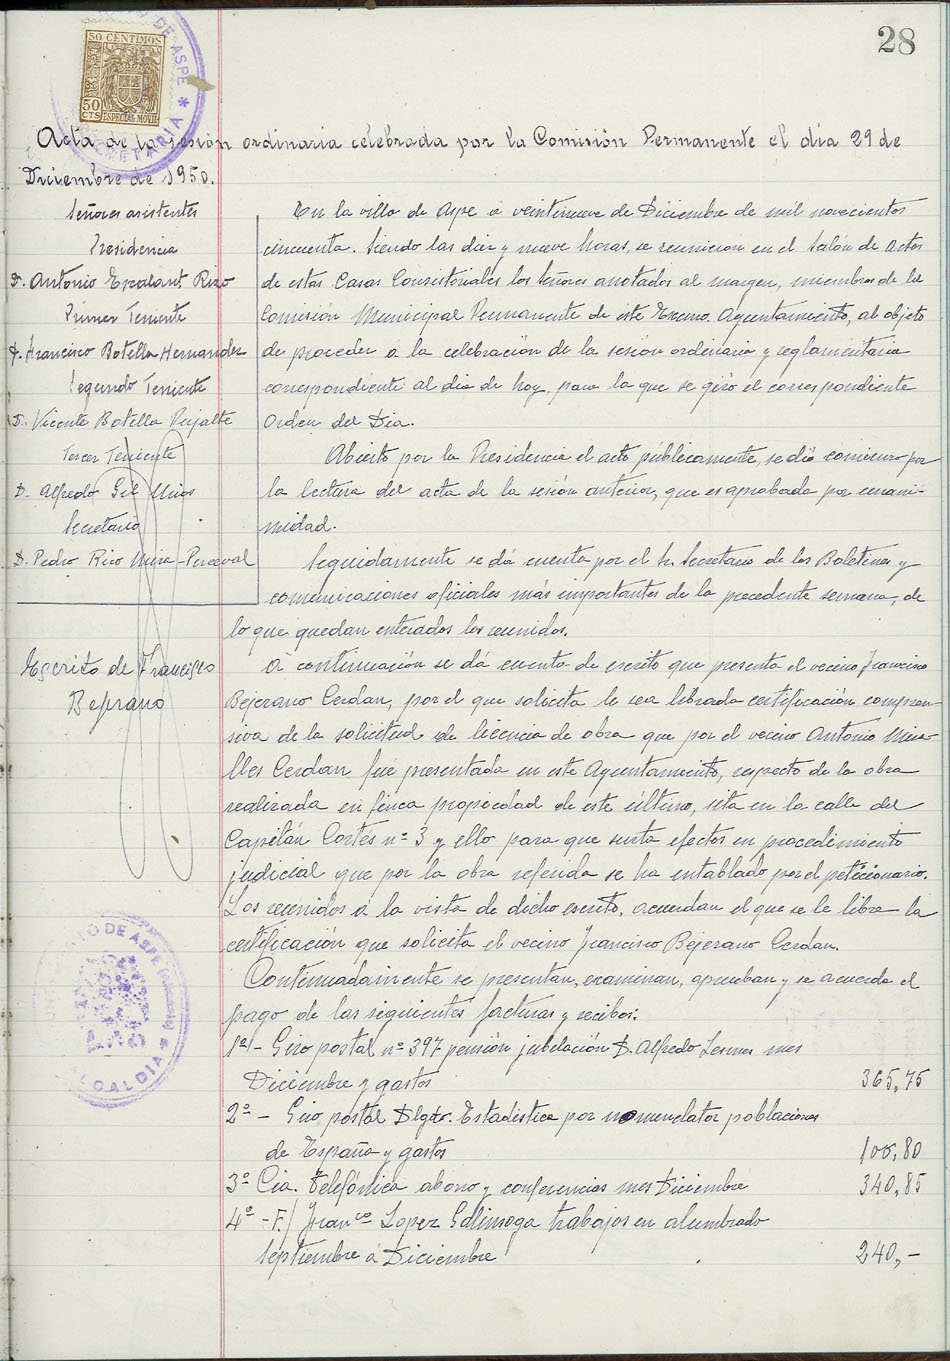 28
50 CENTIMOS
50 CTS ESPECIAL MOVIL
DE ASPE * SECRETARIA
Acta de la sesión ordinaria celebrada por la Comisión Permanente el día 29 de
Diciembre de 1950.
Señores asistentes
Presidencia
D. Antonio Escalant Rizo
Primer Teniente
D. Francisco Botella Hernandez
Segundo Teniente
D. Vicente Botella Pujalte
Tercer Teniente
D. Alfredo Gil
Secretario
D. Pedro Rico Mira-Perceval
En la villa de Aspe a veintinueve de Diciembre de mil novecientos
cincuenta. Siendo las diez y nueve horas, se reunieron en el Salón de Actos
de estas Casas Consistoriales los señores anotados al margen, miembros de la
Comisión Municipal Permanente de este Excmo. Ayuntamiento, al objeto
de proceder a la celebración de la sesión ordinaria y reglamentaria
correspondiente al día de hoy, para la que se giró el correspondiente
Orden del Dia.
Abierto por la Presidencia el acto públicamente, se dió comienzo por
la lectura del acta de la sesión anterior, que es aprobada por unani-
midad.
Seguidamente se dá cuenta por el Sr. Secretario de los Boletines y
comunicaciones oficiales más importantes de la precedente semana, de
lo que quedan enterados los reunidos.
Escrito de Francisco
Bejerano
A continuación se dá cuenta de escrito que presenta el vecino Francisco
Bejerano Cerdan, por el que solicita le sea librada certificación compren-
siva de la solicitud de licencia de obra que por el vecino Antonio Mira-
lles Cerdan fué presentada en este Ayuntamiento, respecto de la obra
realizada en finca propiedad de este último, sita en la calle del
Capitán Cortés nº 3 y ello para que surta efectos en procedimiento
judicial que por la obra referida se ha entablado por el peticionario.
Los reunidos á la vista de dicho escrito, acuerdan el que se le libre la
certificación que solicita el vecino Francisco Bejerano Cerdan.
AYUNTAMIENTO DE ASPE (Alicante) * ALCALDIA *
Continuadamente se presentan, examinan, aprueban y se acuerda el
pago de las siguientes facturas y recibos:
1º - Giro postal nº 397 pensión jubilación D. Alfredo mes
Diciembre y gastos 365,75
2º - Giro postal Dlgdo. Estadística por nomenclator poblaciones
de España y gastos 100,80
3º Cia. Telefónica abono y conferencias mes Diciembre 340,85
4º - F/ Franco Lopez Galinsoga trabajos en alumbrado
septiembre á Diciembre 240,-